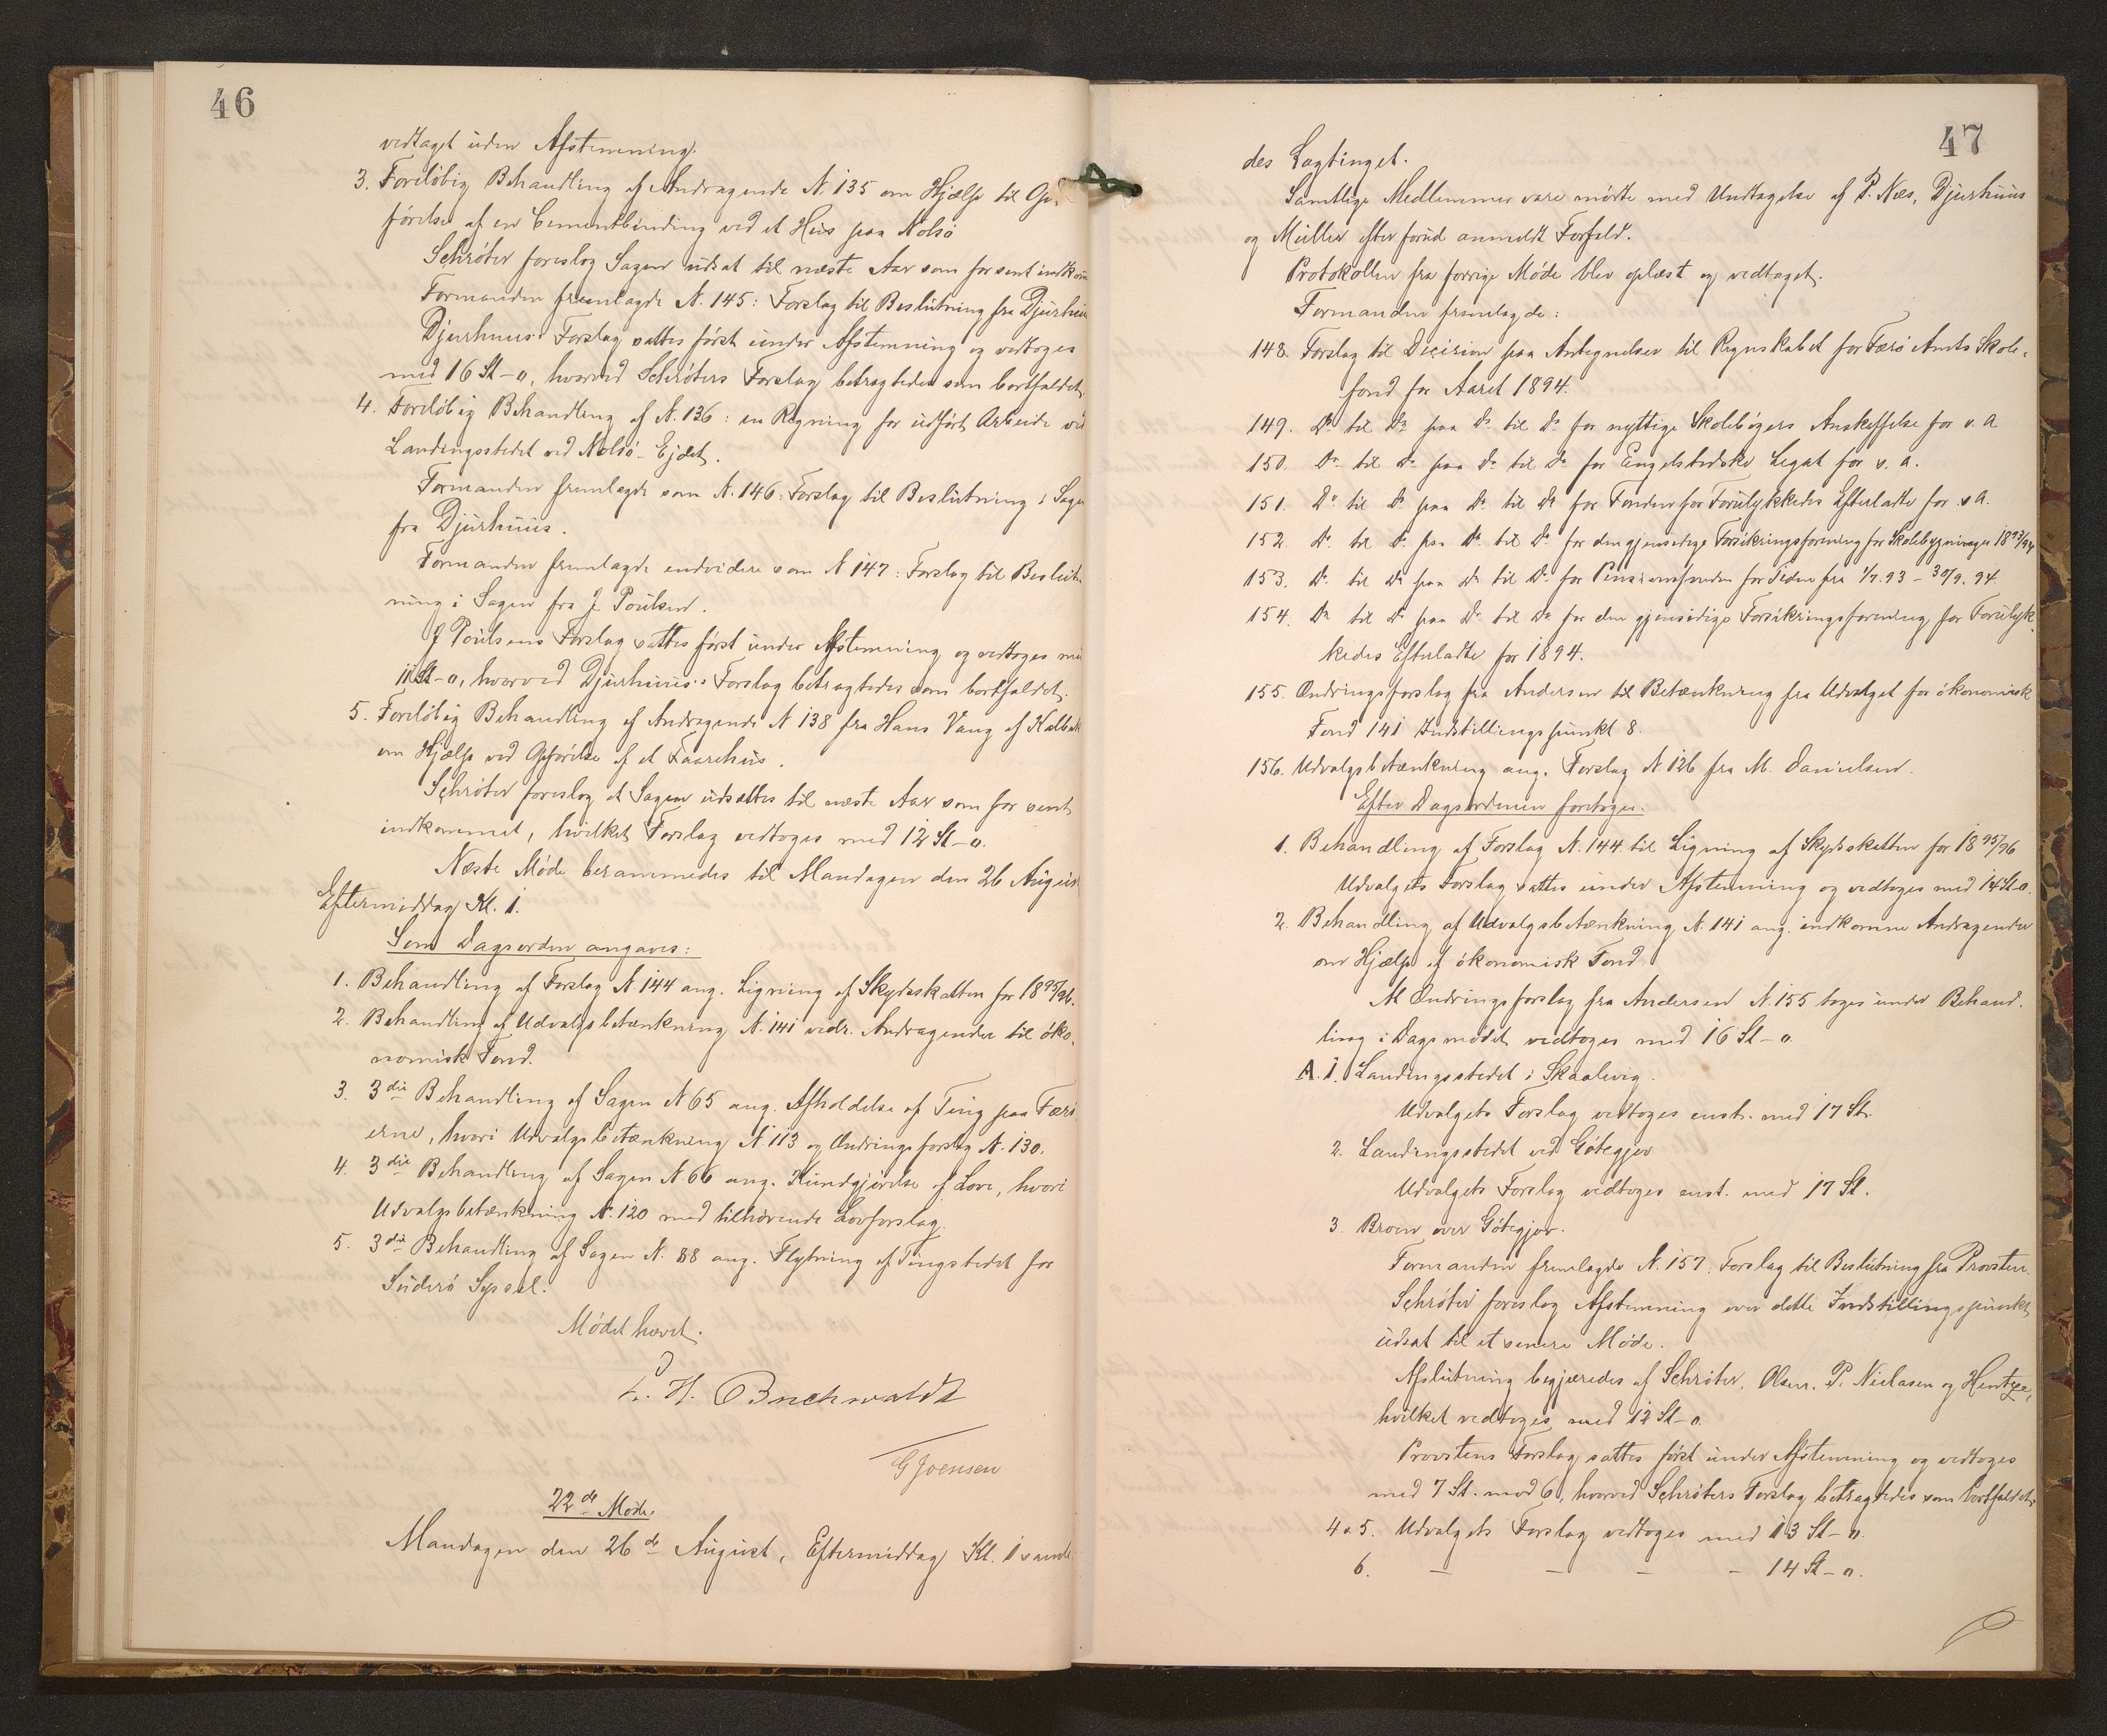 46
vedtaget uden Afstemning.
3. Foreløbig Behandling af Andragende N. 135 om Hjælp til Op-
førelse af en Cementbinding ved et Hus paa Nolsø
Schrøter foreslog Sagen udsat til næste Aar som for sent indkom
Formanden fremlagde N. 145: Forslag til Beslutning fra Djurhuus
Djurhuus' Forslag sattes først under Afstemning og vedtoges
med 16 St - 0, hvorved Schrøters Forslag betragtedes som bortfaldet.
4. Foreløbig Behandling af N. 136: en Regning for udført Arbeide ved
Landingsstedet ved Nolsø-Ejdet.
Formanden fremlagde som N. 146: Forslag til Beslutning i Sagen
fra Djurhuus.
Formanden fremlagde endvidere som N 147: Forslag til Beslut-
ning i Sagen fra J. Poulsen.
J Poulsens Forslag sattes først under Afstemning og vedtoges med
11 St - 0, hvorved Djurhuus's Forslag betragtedes som bortfaldet.
5. Foreløbig Behandling af Andragende N 138 fra Hans Vang af Kalbak
om Hjælp ved Opførelse af et Faarehus.
Schrøter foreslog at Sagen udsættes til næste Aar som for sent
indkommet, hvilket Forslag vedtoges med 12 St - 0.
Næste Møde berammedes til Mandagen den 26 August
Eftermiddag Kl. 1.
Som Dagsorden angaves:
1. Behandling af Forslag N. 144 ang. Ligning af Skydsskatten for 1895/96.
2. Behandling af Udvalgsbetænkning N. 141 vedr. Andragender til øko-
nomisk Fond.
3. 3die Behandling af Sagen N 65 ang. Afholdelse af Ting paa Færø
erne, hvori Udvalgsbetænkning N. 113 og Ændringsforslag N. 130.
4. 3die Behandling af Sagen N. 66 ang. Kundgjørelse af Love, hvori
Udvalgsbetænkning N. 120 med tilhørende Lovforslag.
5. 3die Behandling af Sagen N. 88 ang. Flytning af Tingstedet for
Suderø Syssel.
Mødet hævet.
H. Buchwaldt
G Joensen
22de Møde.
Mandagen den 26de August, Eftermiddag Kl. 1 samle
47
des Lagtinget.
Samtlige Medlemmer vare mødte med Undtagelse af P. Næs, Djurhuus
og Müller efter forud anmeldt Forfald.
Protokollen fra forrige Møde blev oplæst og vedtaget.
Formanden fremlagde:
148. Forslag til Decision paa Antegnelser til Regnskabet for Færø Amts Skole-
fond for Aaret 1894.
149. Do til Do paa Do til Do for nyttige Skolebøgers Anskaffelse for s. A
150. Do til Do paa Do til Do for Engelstedske Legat for s. A.
151. Do til Do paa Do til Do for Fonden for Forulykkedes Efterladte for s A.
152. Do til Do paa Do til Do for den gjensidige Forsikringsforening for Skolebygninger 1893/94
153. Do til Do paa Do til Do for Pensionsfonden for Tiden fra 1/7.93 - 30/9.94
154. Do til Do paa Do til Do for den gjensidige Forsikringsforening for Forulyk-
kedes Efterladte for 1894.
155. Ændringsforslag fra Andersen til Betænkning fra Udvalget for økonomisk
Fond 141 Indstillingspunkt 8.
156. Udvalgsbetænkning ang. Forslag N. 126 fra M. Danielsen.
Efter Dagsordenen foretoges:
1. Behandling af Forslag N. 144 til Ligning af Skydsskatten for 1895/96
Udvalgets Forslag sattes under Afstemning og vedtoges med 14 St - 0.
2. Behandling af Udvalgsbetænkning N. 141 ang. indkomne Andragender
om Hjælp af økonomisk Fond
At Ændringsforslag fra Andersen N. 155 toges under Behand-
ling i Dagsmødet vedtoges med 16 St - 0.
A. 1. Landingsstedet i Skaalevig.
Udvalgets Forslag vedtoges enst. med 17 St.
2. Landingsstedet ved Gøtegjov
Udvalgets Forslag vedtoges enst. med 17 St.
3. Broen over Gøtegjov.
Formanden fremlagde N. 157: Forslag til Beslutning fra Provsten.
Schrøter foreslog Afstemning over dette Indstillingspunkt
udsat til et senere Møde.
Afslutning begjæredes af Schrøter, Olsen, P. Nielasen og Hentze,
hvilket vedtoges med 12 St - 0.
Provstens Forslag sattes først under Afstemning og vedtoges
med 7 St. mod 6, hvorved Schrøters Forslag betragtedes som bortfaldet.
4 o. 5. Udvalgets Forslag vedtoges med 13 St - 0.
6. — — — — 14 St - 0.